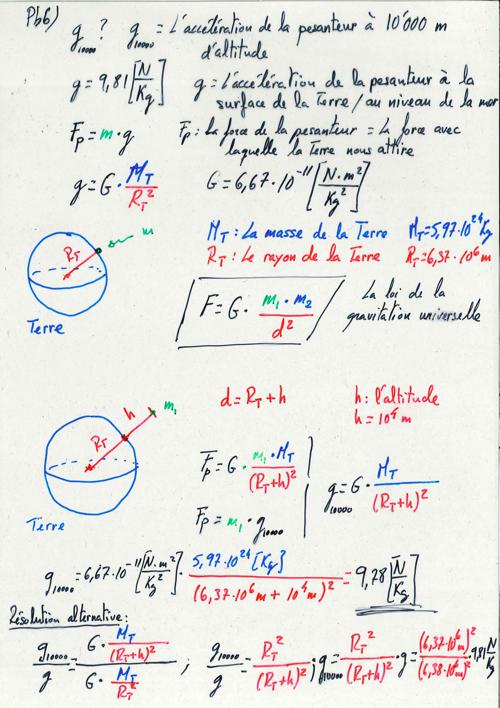 Pb6)
g₁₀₀₀₀ ? g₁₀₀₀₀ = L'accélération de la pesanteur à 10'000 m d'altitude
g = 9,81 [N/Kg] g = L'accélération de la pesanteur à la surface de la Terre / au niveau de la mer
Fp = m · g Fp : La force de la pesanteur = La force avec laquelle la Terre nous attire
g = G · M_T / R_T² G = 6,67 · 10⁻¹¹ [N·m² / Kg²]
R_T m
M_T : La masse de la Terre M_T = 5,97 · 10²⁴ Kg
R_T : Le rayon de la Terre R_T = 6,37 · 10⁶ m
Terre
F = G · m₁ · m₂ / d² La loi de la gravitation universelle
R_T h m₁
d = R_T + h h : l'altitude
h = 10⁴ m
Fp = G · m₁ · M_T / (R_T + h)²
g₁₀₀₀₀ = G · M_T / (R_T + h)²
Fp = m₁ · g₁₀₀₀₀
Terre
g₁₀₀₀₀ = 6,67 · 10⁻¹¹ [N·m² / Kg²] · 5,97 · 10²⁴ [Kg] / (6,37 · 10⁶ m + 10⁴ m)² = 9,78 [N/Kg]
Résolution alternative :
g₁₀₀₀₀ / g = G · M_T / (R_T + h)² / G · M_T / R_T² ; g₁₀₀₀₀ / g = R_T² / (R_T + h)² ; g₁₀₀₀₀ = R_T² / (R_T + h)² · g = (6,37 · 10⁶ m)² / (6,38 · 10⁶ m)² · 9,81 N/Kg